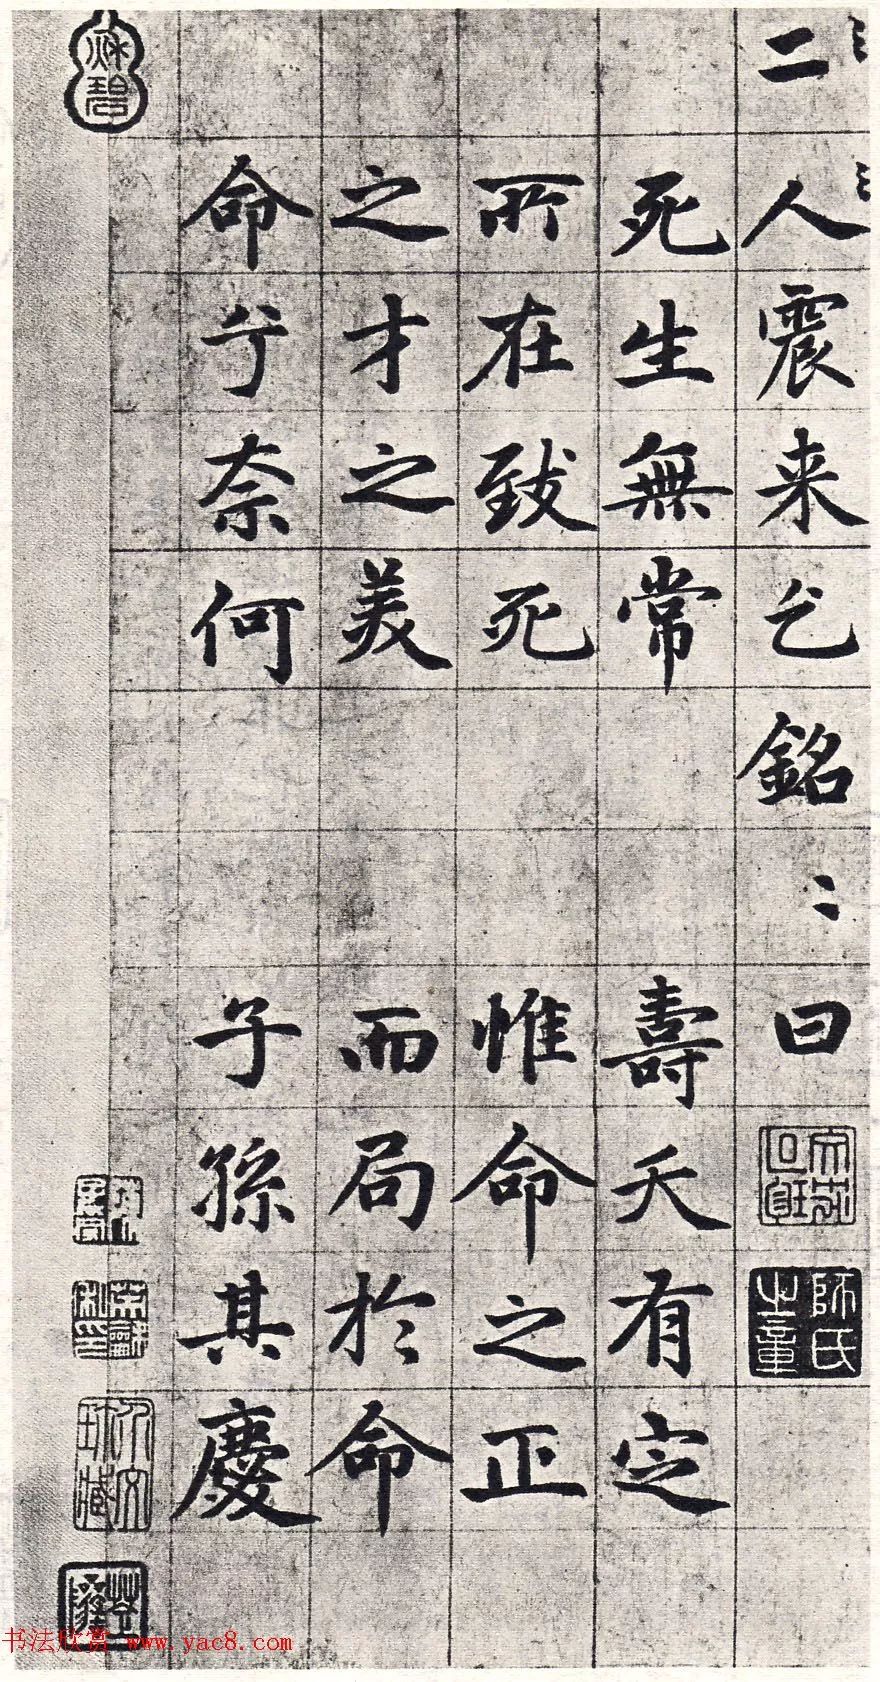 二人震来乞銘〻曰
師氏之章
死生無常 壽夭有定
所在致死 惟命之正
之才之美 而局於命
命兮奈何 子孫其慶
书法欣赏 www.yac8.com